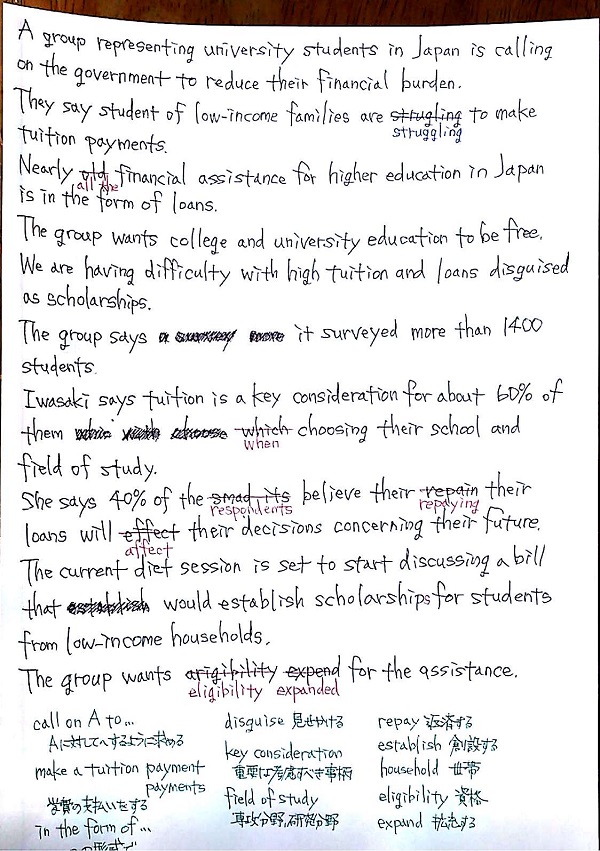 A group representing university students in Japan is calling
on the government to reduce their financial burden.
They say student of low-income families are strugling to make
struggling
tuition payments.
Nearly old financial assistance for higher education in Japan
all the
is in the form of loans.
The group wants college and university education to be free.
We are having difficulty with high tuition and loans disguised
as scholarships.
The group says it surveyed more than 1400
students.
Iwasaki says tuition is a key consideration for about 60% of
them which choosing their school and
when
field of study.
She says 40% of the smad its believe their repain their
respondents repaying
loans will effect their decisions concerning their future.
affect
The current diet session is set to start discussing a bill
that would establish scholarships for students
from low-income households.
The group wants arigibility expend for the assistance.
eligibility expanded
call on A to... disguise 見せかける repay 返済する
Aに対して〜するように求める establish 創設する
make a tuition payment key consideration household 世帯
payments 重要な考慮すべき事柄
学費の支払いをする field of study eligibility 資格
in the form of... 専攻分野,研究分野 expand 拡充する
の形式で